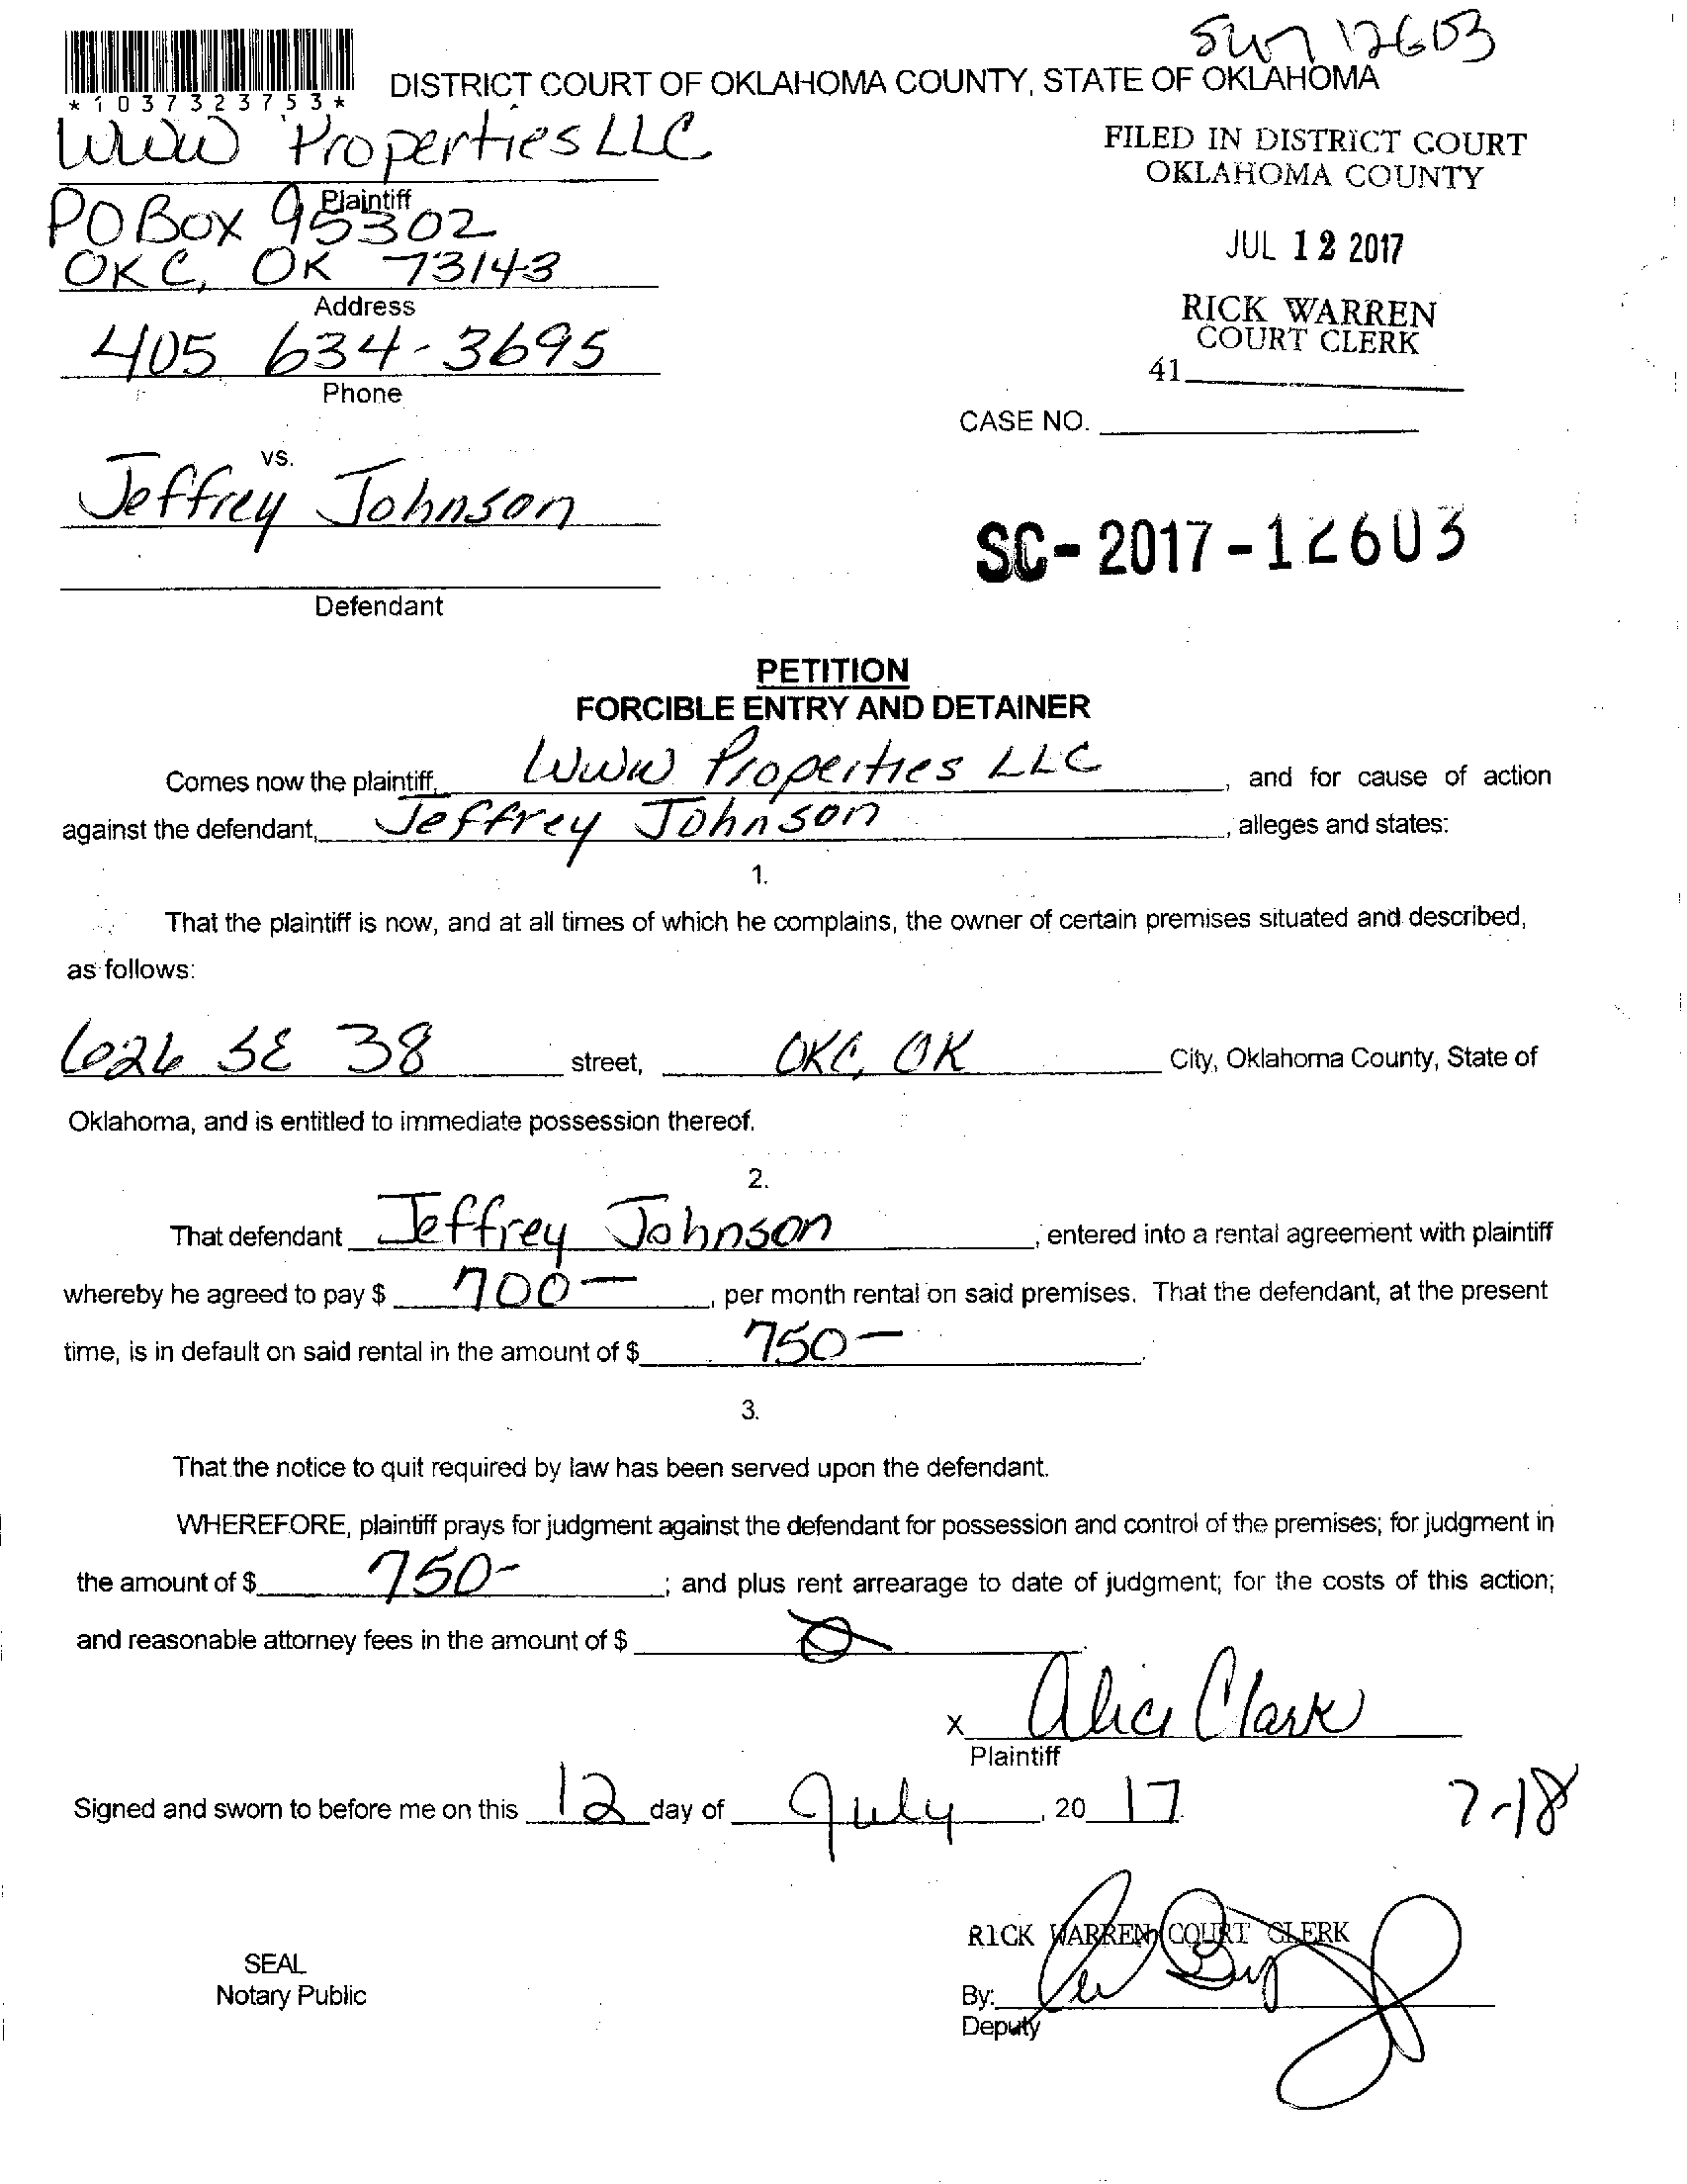 12603
DISTRICT COURT OF OKLAHOMA COUNTY, STATE OF OKLAHOMA
*1037323753*
WWW Properties LLC
Plaintiff
PO Box 95302
OKC, OK 73143
Address
405 634-3695
Phone
FILED IN DISTRICT COURT
OKLAHOMA COUNTY
JUL 12 2017
RICK WARREN
COURT CLERK
41
CASE NO.
vs.
Jeffrey Johnson
Defendant
SC-2017-12603
PETITION
FORCIBLE ENTRY AND DETAINER
Comes now the plaintiff, WWW Properties LLC, and for cause of action
against the defendant, Jeffrey Johnson, alleges and states:
1.
That the plaintiff is now, and at all times of which he complains, the owner of certain premises situated and described,
as follows:
626 SE 38 street, OKC, OK City, Oklahoma County, State of
Oklahoma, and is entitled to immediate possession thereof.
2.
That defendant Jeffrey Johnson, entered into a rental agreement with plaintiff
whereby he agreed to pay $ 700-, per month rental on said premises. That the defendant, at the present
time, is in default on said rental in the amount of $ 750-.
3.
That the notice to quit required by law has been served upon the defendant.
WHEREFORE, plaintiff prays for judgment against the defendant for possession and control of the premises; for judgment in
the amount of $ 750-; and plus rent arrearage to date of judgment; for the costs of this action;
and reasonable attorney fees in the amount of $ 0.
x Alice Clark
Plaintiff
Signed and sworn to before me on this 12 day of July, 20 17.
7-18
RICK WARREN, COURT CLERK
SEAL
Notary Public
By:
Deputy